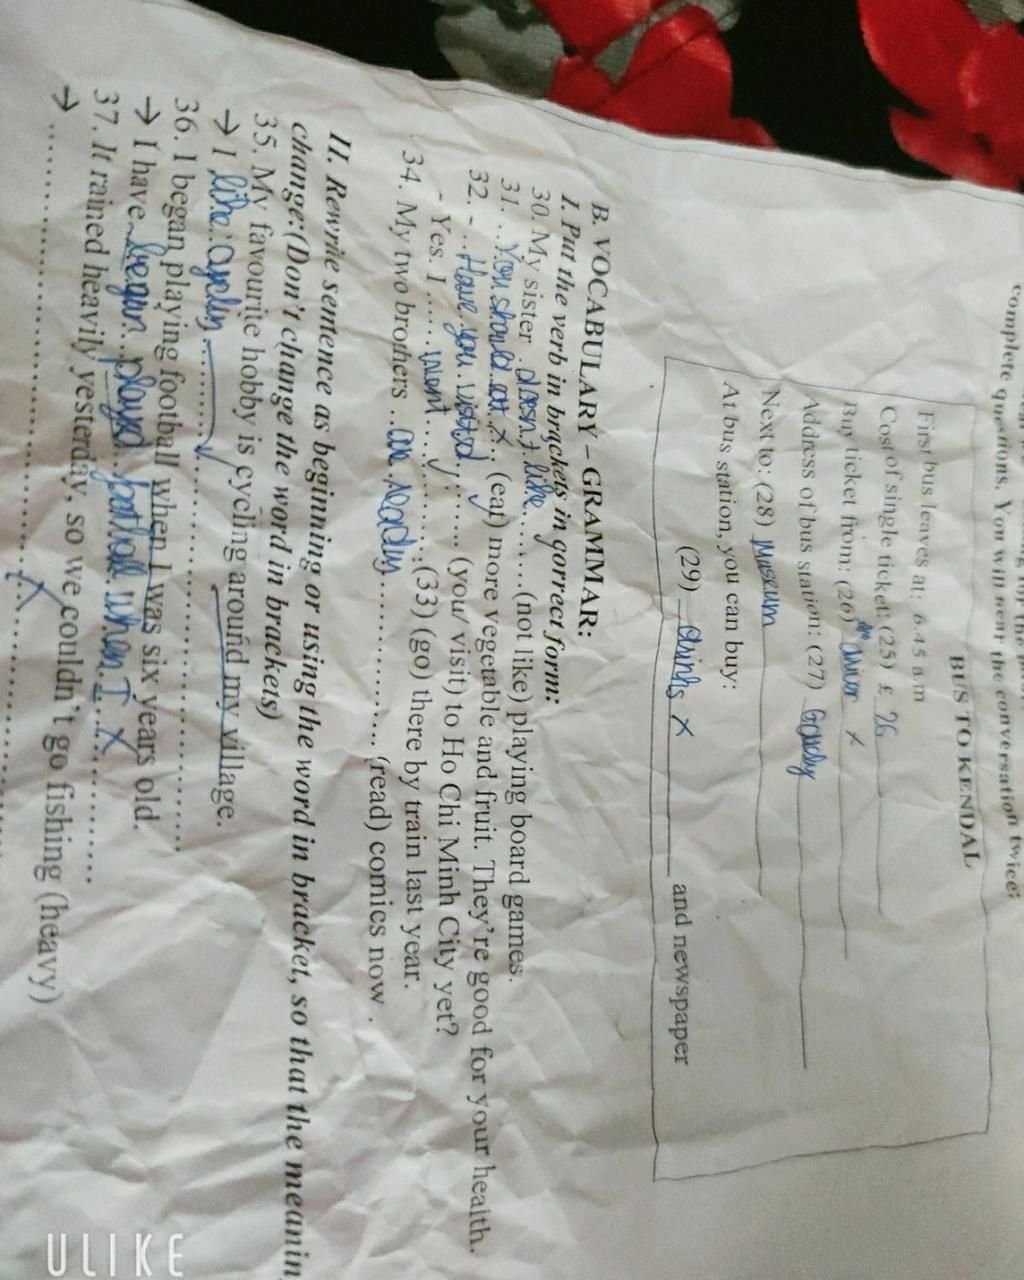 complete questions. You will hear the conversation twice:
BUS TO KENDAL
First bus leaves at: 6.45 a.m
Cost of single ticket: (25) £ 26
Buy ticket from: (26) X
Address of bus station: (27)
Next to: (28) Museum
At bus station, you can buy:
(29) drinks X and newspaper
B. VOCABULARY – GRAMMAR:
I. Put the verb in brackets in correct form:
30. My sister doesn't like (not like) playing board games.
31. You should eat X (eat) more vegetable and fruit. They're good for your health.
32. - Have you visited (you/ visit) to Ho Chi Minh City yet?
- Yes. I went (33) (go) there by train last year.
34. My two brothers (read) comics now .
II. Rewrite sentence as beginning or using the word in bracket, so that the meanin
change:(Don't change the word in brackets)
35. My favourite hobby is cycling around my village.
→ I like
36. I began playing football when I was six years old.
→ I have began playd when I X
37. It rained heavily yesterday, so we couldn't go fishing (heavy)
→ X
ULIKE